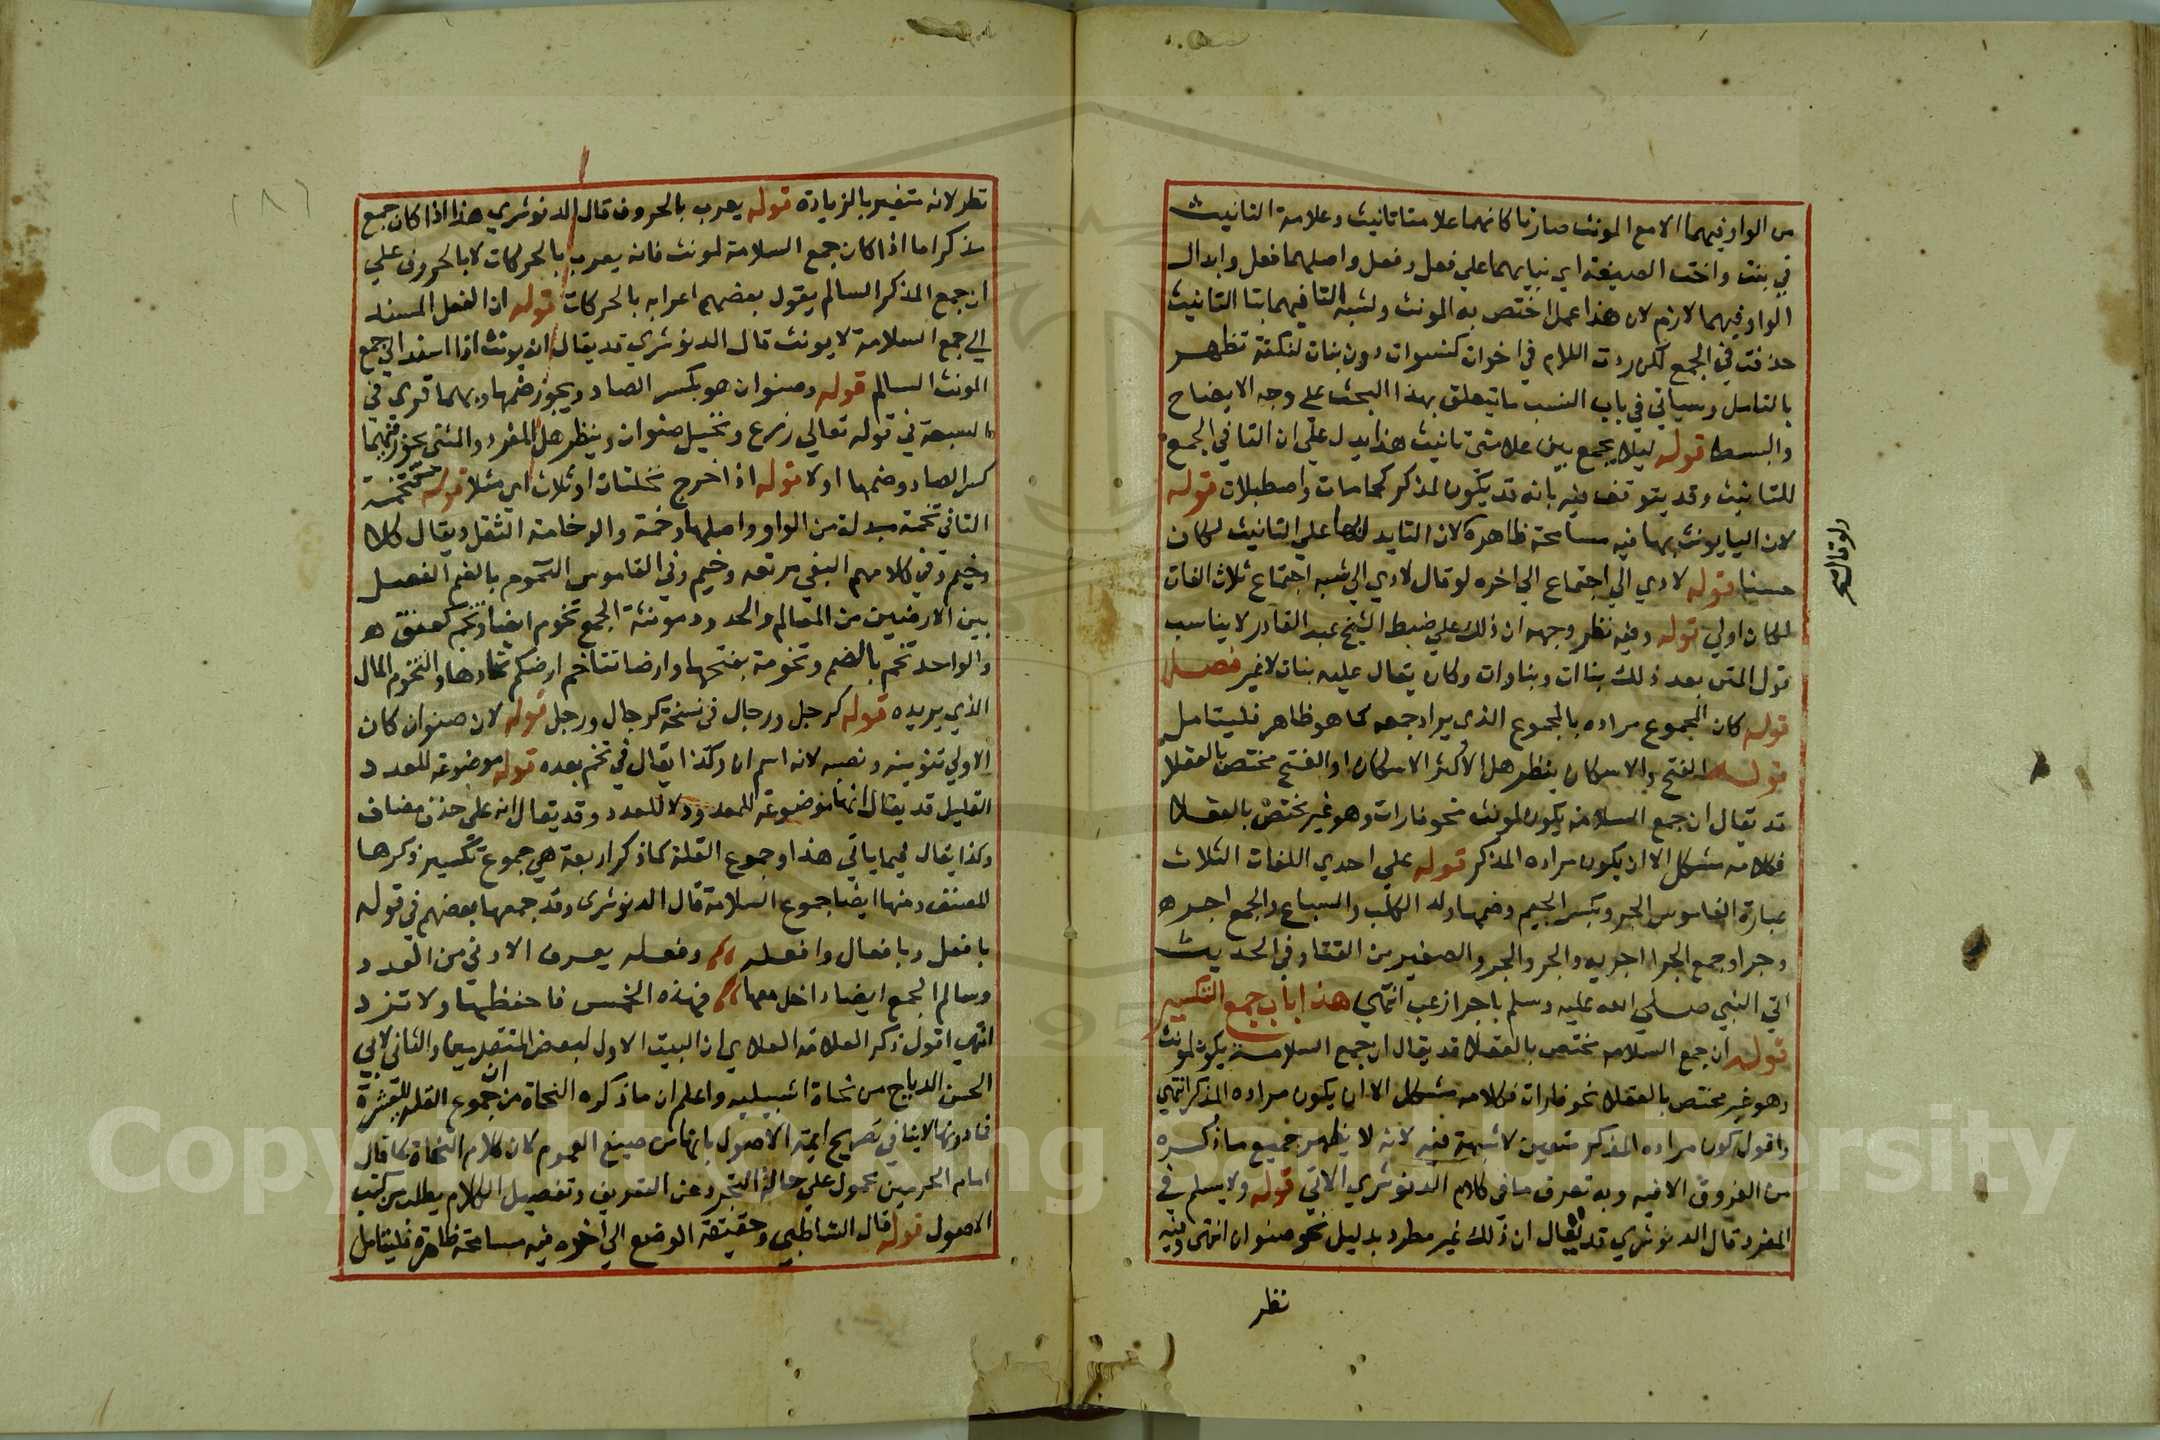 من الواو فيهما الامع المونث صارتا كانهما علامتا تانيث وعلامة التانيث
في بنت واخت الصيغة اي بنيا بهما علي فعل وفعل واصلهما فعل وابدال
الواو فيهما لازم لان هذا عمل اختص به المونث ولشبه التا فيهما بتا التانيث
حذفت في الجمع لكن ردت اللام في اخوات كسنوات دون بنات لنكتة تظهر
بالتامل وسياتي في باب النسب ما يتعلق بهذا البحث علي وجه الايضاح
والبسط قوله ليلا يجمع بين علامتي تانيث هذا يدل علي ان التا في الجمع
للتانيث وقد يتوقف فيه بانه قد يكون لمذكر كحمامات واصطبلات قوله
لان اليا يونث بها فيه مسامحة ظاهرة لان التا يدل علي التانيث لكان
حسنا قوله لادي الي اجتماع الي اخره لو قال لادي الي شبه اجتماع ثلاث الفات
لكان اولي قوله وفيه نظر وجهه ان ذلك علي ضبط الشيخ عبد القادر لا يناسب
قول المتن بعد ذلك بناات وبناوات وكان يقال عليه بنات لا غير فصل
قوله كان المجموع مراده بالمجموع الذي يراد جمعه كما هو ظاهر فليتامل
قوله الفتح والاسكان ينظر هل الاكثر الاسكان او الفتح مختص بالعقلا
قد يقال ان جمع السلامة يكون لمونث نحو فارات وهو غير مختص بالعقلا
فكلامه مشكل الا ان يكون مراده المذكر قوله علي احدي اللغات الثلاث
عبارة القاموس الجرو بكسر الجيم وضمها ولد الكلب والسباع والجمع اجره
وجرا وجمع الجرا اجريه والجر والجرو الصغير من القثا وفي الحديث
اتي النبي صلي الله عليه وسلم باجر ازعب انتهي هذا باب جمع التكسير
قوله ان جمع السلامة مختص بالعقلا قد يقال ان جمع السلامة يكون لمونث
وهو غير مختص بالعقلا نحو فارات فكلامه مشكل الا ان يكون مراده المذكر انتهي
واقول كون مراده المذكر متعين لا شبهة فيه لانه لا يظهر جميع ما ذكره
من الفروق الا فيه وبه تعرف ما في كلام الدنوشري الاتي قوله ولا يسلم في
المفرد قال الدنوشري قد يقال ان ذلك غير مطرد بدليل نحو صنوان انتهي وفيه
نظر
ولو قال صح
نظر لانه متغير بالزيادة قوله يعرب بالحروف قال الدنوشري هذا اذا كان جمع
مذكر اما اذا كان جمع السلامة لمونث فانه يعرب بالحركات لا بالحروف علي
ان جمع المذكر السالم يقول بعضهم اعرابه بالحركات قوله ان الفعل المسند
الي جمع السلامة لا يونث قال الدنوشري قد يقال انه يونث اذا اسند الي جمع
المونث السالم قوله وصنوان هو بكسر الصاد ويجوز ضمها وبهما قري في
السبعة في قوله تعالي زرع ونخيل صنوان وينظر هل المفرد والمثني يجوز فيهما
كسر الصاد وضمها اولا قوله اذا خرج نخلتان او ثلاث اي مثلا قوله تخمة
التا في تخمة مبدلة من الواو واصلها وخمة والوخامة الثقل ويقال كلا
وخيم وفي كلامهم البغي مرتعه وخيم وفي القاموس التخوم بالضم الفصل
بين الارضين من المعالم والحدود مونثة الجمع تخوم ايضا وتخم كعنق
والواحد تخم بالضم وتخومة بفتحها وارضنا تتاخم ارضكم تحادها والتخوم المال
الذي يريده قوله كرجل ورجال في نسخة كرجال ورجل قوله لان صنوان كان
الاولي تنوينه ونصبه لانه اسم ان وكذا يقال في تخم بعده قوله موضوعة للعدد
القليل قد يقال انها موضوعة للمعدود لا للعدد وقد يقال انه علي حذف مضاف
وكذا يقال فيما ياتي هذا وجموع القلة كما ذكر اربعة هي جموع تكسير ذكرها
المصنف ومنها ايضا جموع السلامة قال الدنوشري وقد جمعها بعضهم في قوله
بافعل وبافعال وافعلة وفعلة يعرف الادني من العدد
وسالم الجمع ايضا داخل معها فهذه الخمس فاحفظها ولا تزد
انتهي اقول ذكر العلامة العلاي ان البيت الاول لبعض المتقدمين والثاني لابي
الحسن الدباج من نحاة اشبيليه واعلم ان ما ذكره النحاة من ان جموع القلة للعشرة
فما دونها لا ينافي تصريح ايمة الاصول بانها من صيغ العموم لان كلام النحاة كما قال
امام الحرمين محمول علي حالة التجرد عن التعريف وتفصيل الكلام يطلب من كتب
الاصول قوله قال الشاطبي وحقيقة الوضع الي اخره فيه مسامحة ظاهرة فليتامل
Copyright © King Saud University